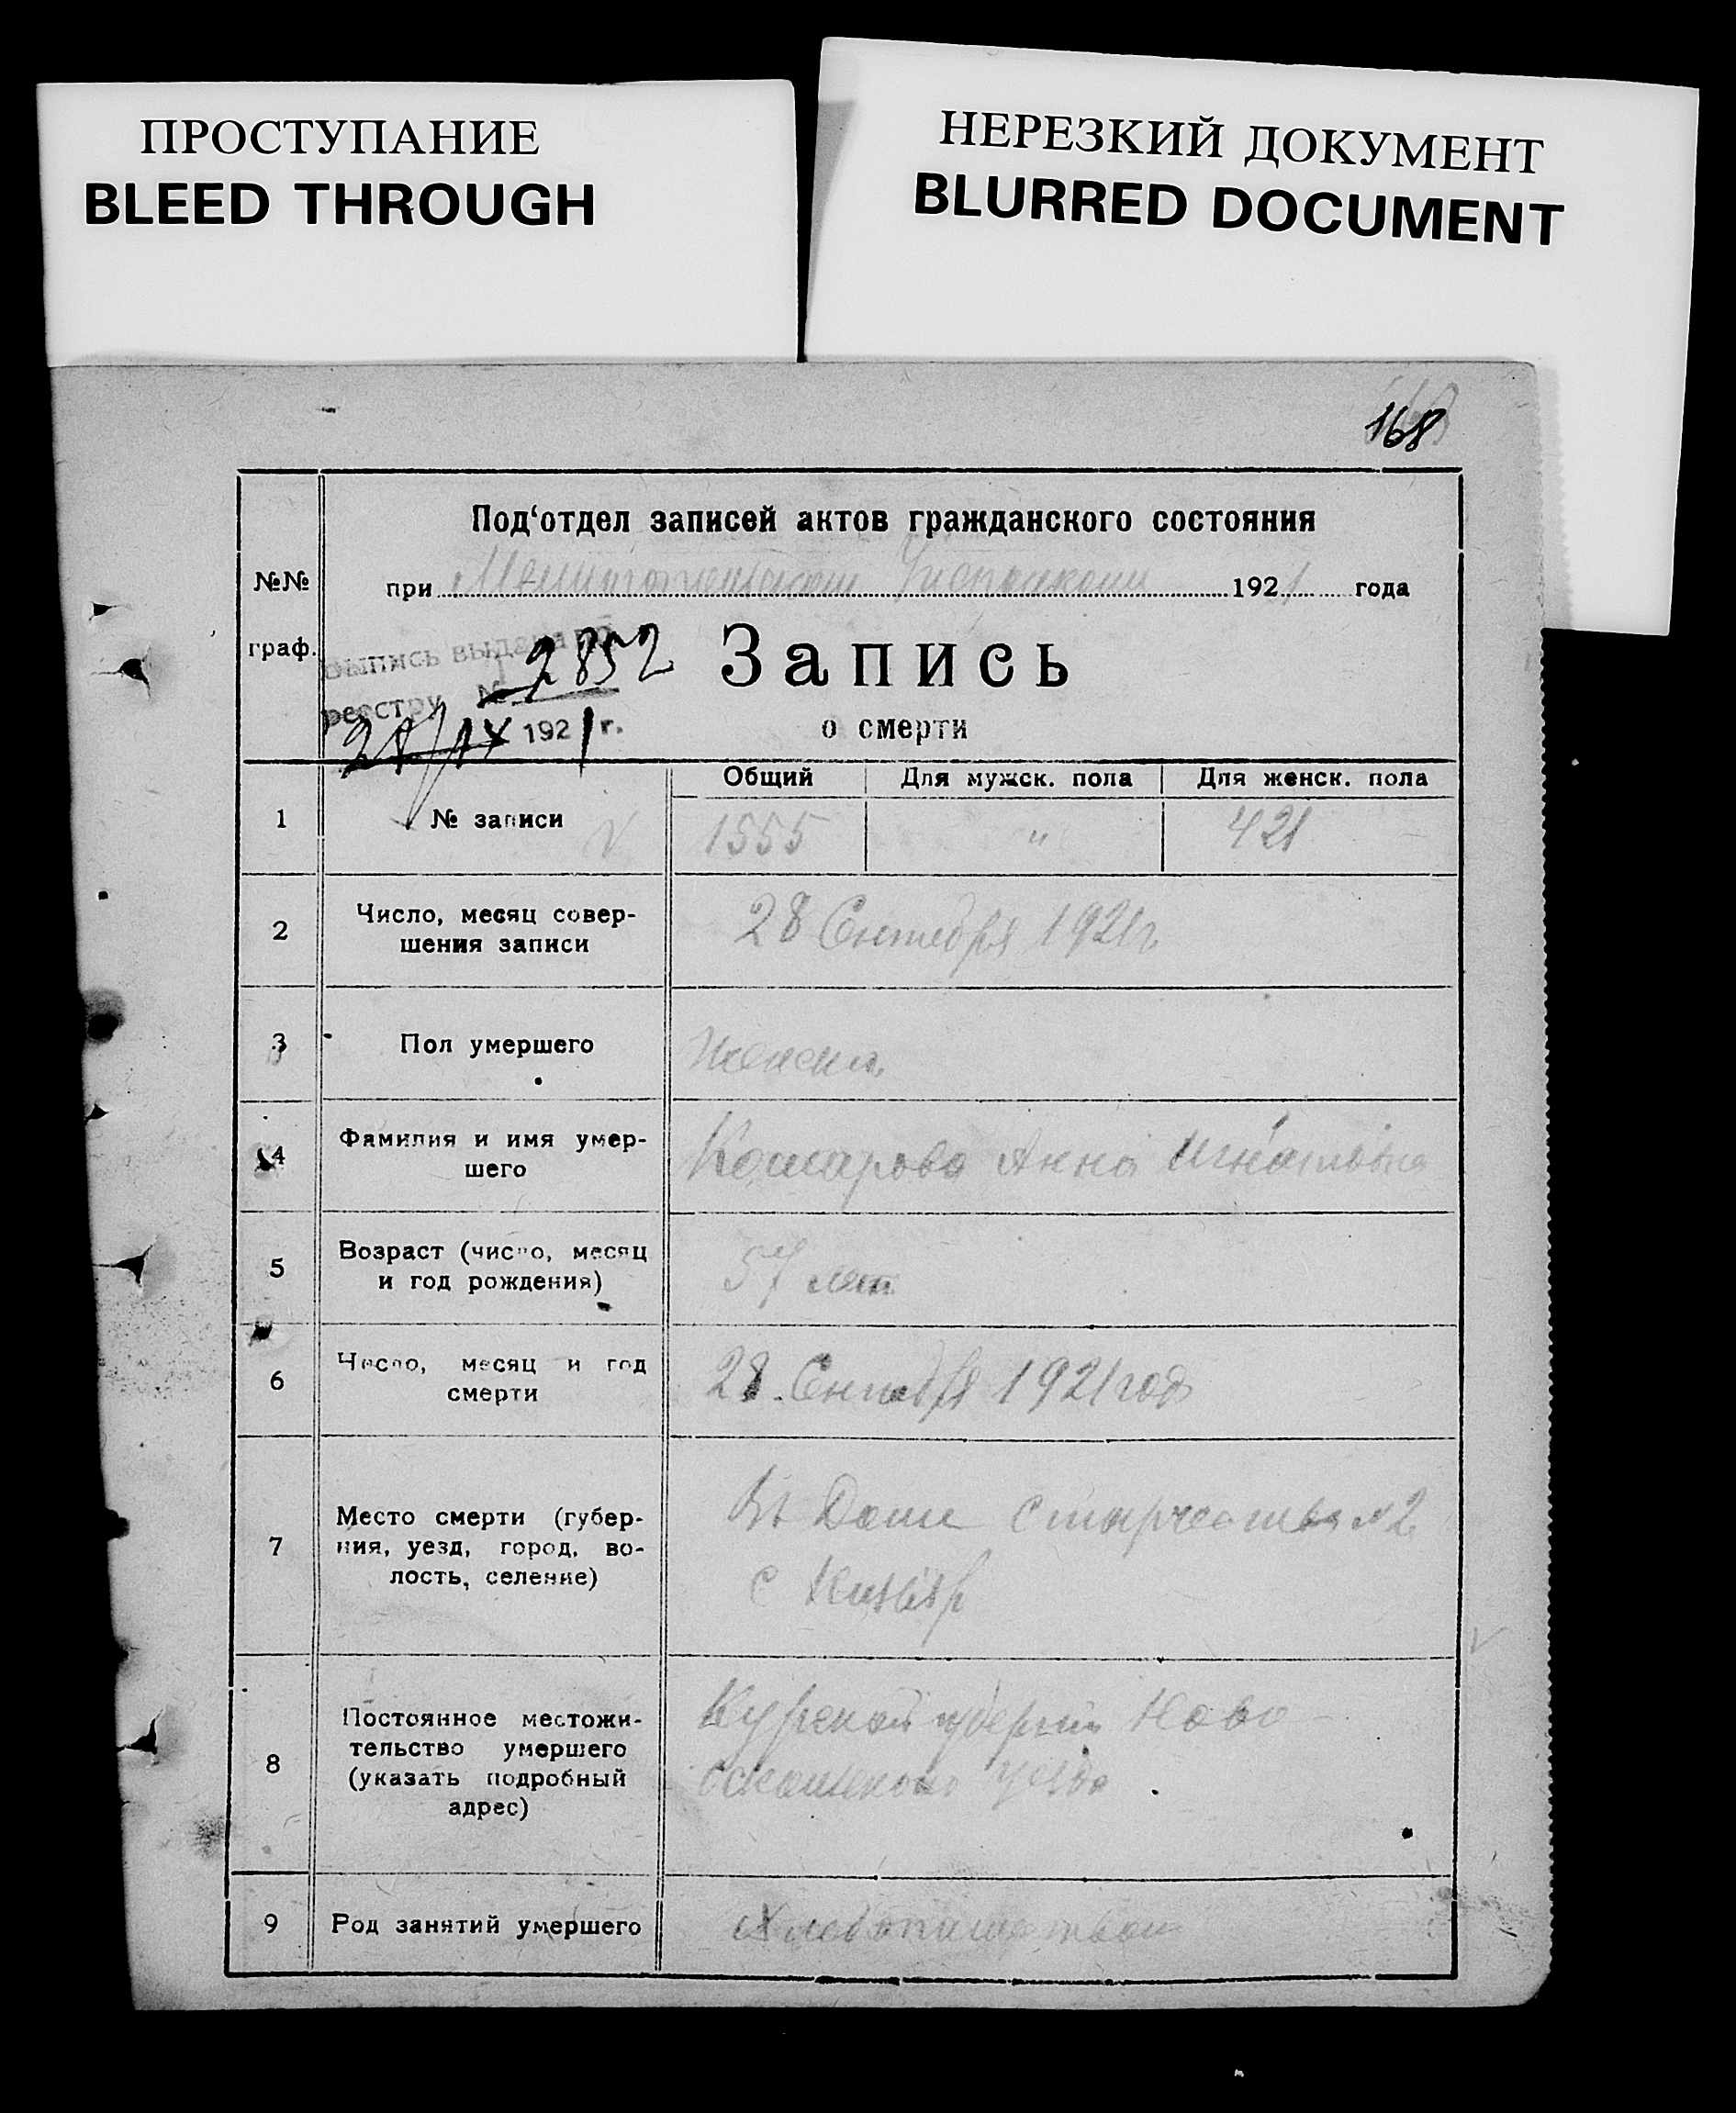 ПРОСТУПАНИЕ
BLEED THROUGH
НЕРЕЗКИЙ ДОКУМЕНТ
BLURRED DOCUMENT
168
Под‘отдел записей актов гражданского состояния
№№
граф.
при Мелитопольском Уисполкоми 1921 года
Выпись выдана по
реестру № 2852
28/IX 1921 г.
Запись
о смерти
Общий Для мужск. пола Для женск. пола
1 № записи 1555 " 421
2 Число, месяц совер-
шения записи
28 Сентября 1921 г.
3 Пол умершего
4 Фамилия и имя умер-
шего
Комарова Анна Игнатьевна
5 Возраст (число, месяц
и год рождения)
57 лет
6 Число, месяц и год
смерти
28. Сентября 1921 года
7 Место смерти (губер-
ния, уезд, город, во-
лость, селение)
В Доме старчества №2
с Кизияр
8 Постоянное местожи-
тельство умершего
(указать подробный
адрес)
Курской губернии Ново
Оскольского уезда
9 Род занятий умершего
Хлебопашеством